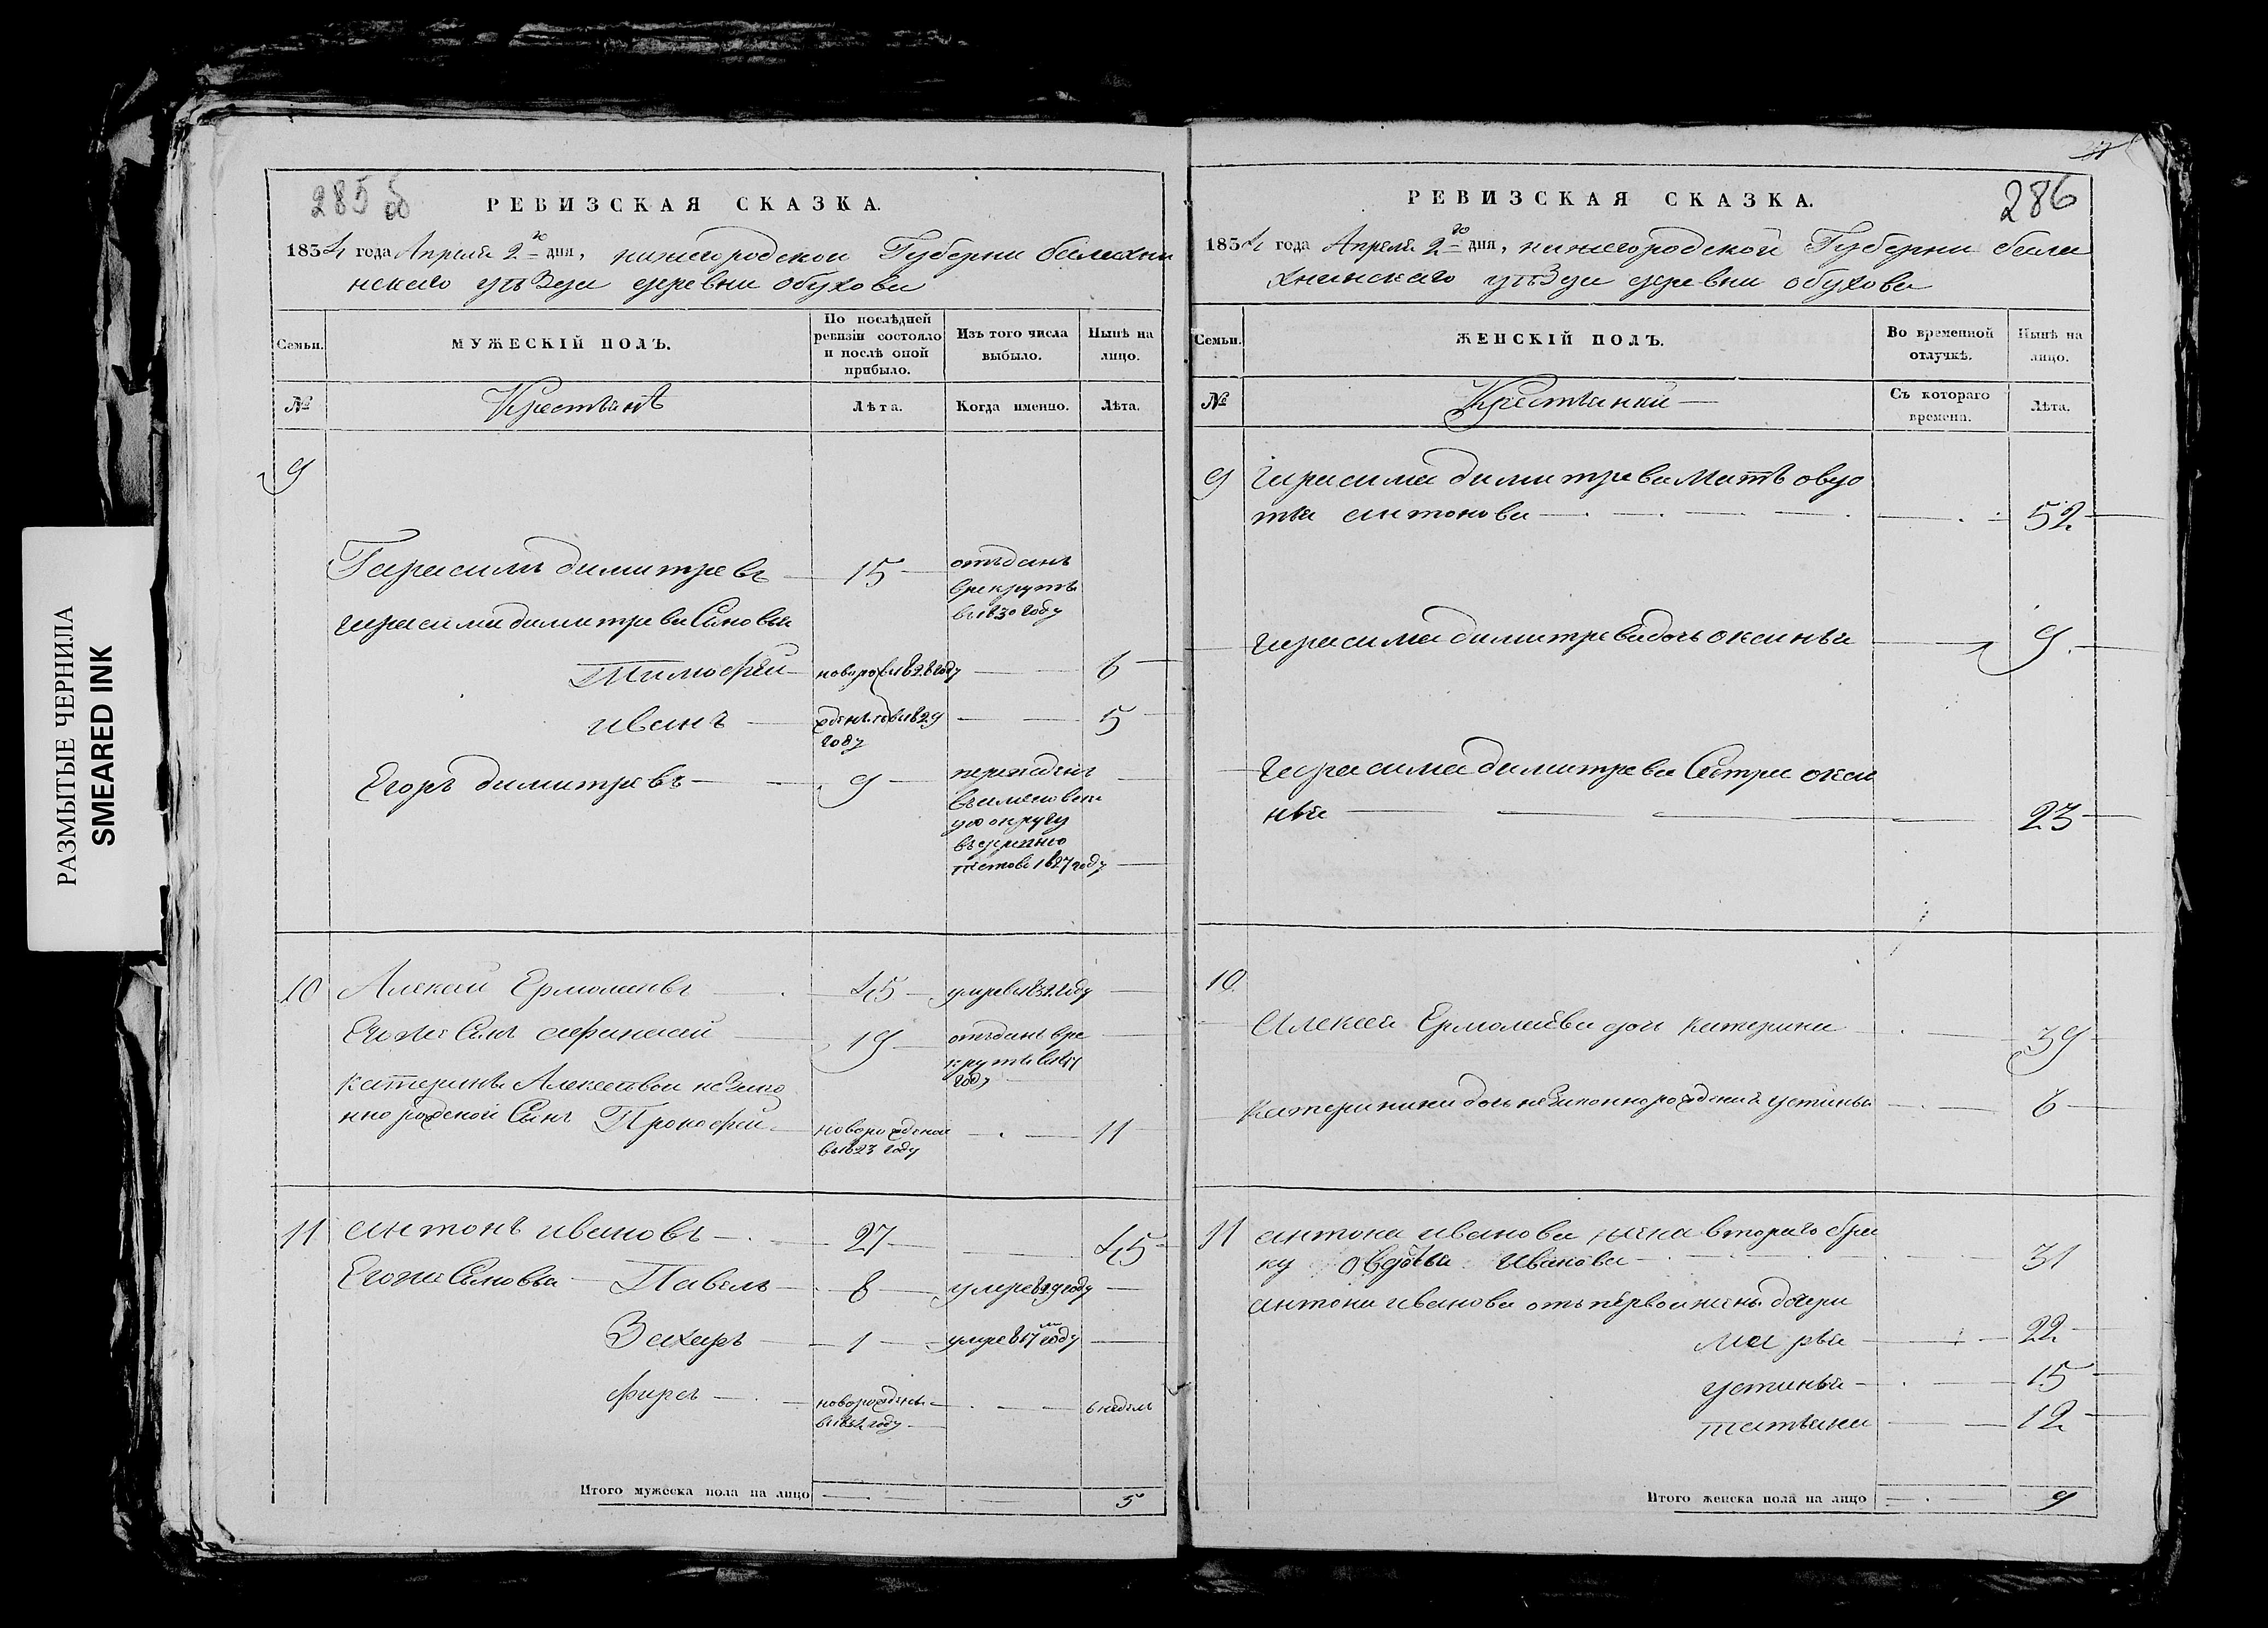 РАЗМЫТЫЕ ЧЕРНИЛА
SMEARED INK
285 об
РЕВИЗСКАЯ СКАЗКА.
1834 года Апреля 2го дня, нижегородской Губерни балахни
нскаго уѣзда деревни обухова
Семьи.
МУЖЕСКІЙ ПОЛЪ.
По послѣдней ревизіи состояло и послѣ оной прибыло.
Изъ того числа выбыло.
Нынѣ на лицо.
№
Крестьянѣ
Лѣта.
Когда именно.
Лѣта.
9
Гарасимъ димитревъ 15 отъданъ
врекруты
въ 1830 году
гарасима димитрева Сыновья
Тимофей 6
иванъ 5
году
Егоръ димитревъ 9
округу
1827 году
10 Алексей Ермолаевъ 45
Егоже Сынъ афанасий 19 отъданъ вре
круты
году
катерины Алексеевои незако
ннорожденой Сынъ Прокофей новорожденой 11
въ 1823 году
11 антонъ ивановъ 27 45
Егоже Сыновья Павелъ 8 умре 829 году
Захаръ 1 умре 817м году
фирсъ новорожденъ 6 недель
году
Итого мужеска пола на лицо 5
286
РЕВИЗСКАЯ СКАЗКА.
1834 года Апреля 2го дня, нижегородской Губерни бала
хнинскаго уѣзда деревни обухова
Семьи.
ЖЕНСКІЙ ПОЛЪ.
Во временной отлучкѣ.
Нынѣ на лицо.
№
Крестьянки
Съ котораго времени.
Лѣта.
9 гарасима димитрева Мать овдо
тья антонова 52
гарасима димитрева дочь оксинья 9
гарасима димитрева Сестра окси
нья 23
10
Алексея Ермолаева дочь катерина 39
катеринина дочь незаконнорожденая устинья 6
11 антона иванова жена втораго бра
ку овдотья Иванова 31
антона иванова отъ первои жены дочери
марья 22
устинья 15
татьяна 12
Итого женска пола на лицо 9